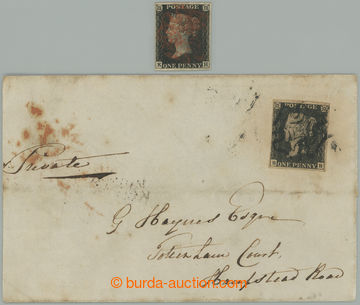 POSTAGE
ONE PENNY
POSTAGE
ONE PENNY
Private
G Haynes Esqre
Tottenham Court
Hampstead Road
burda-auction.com